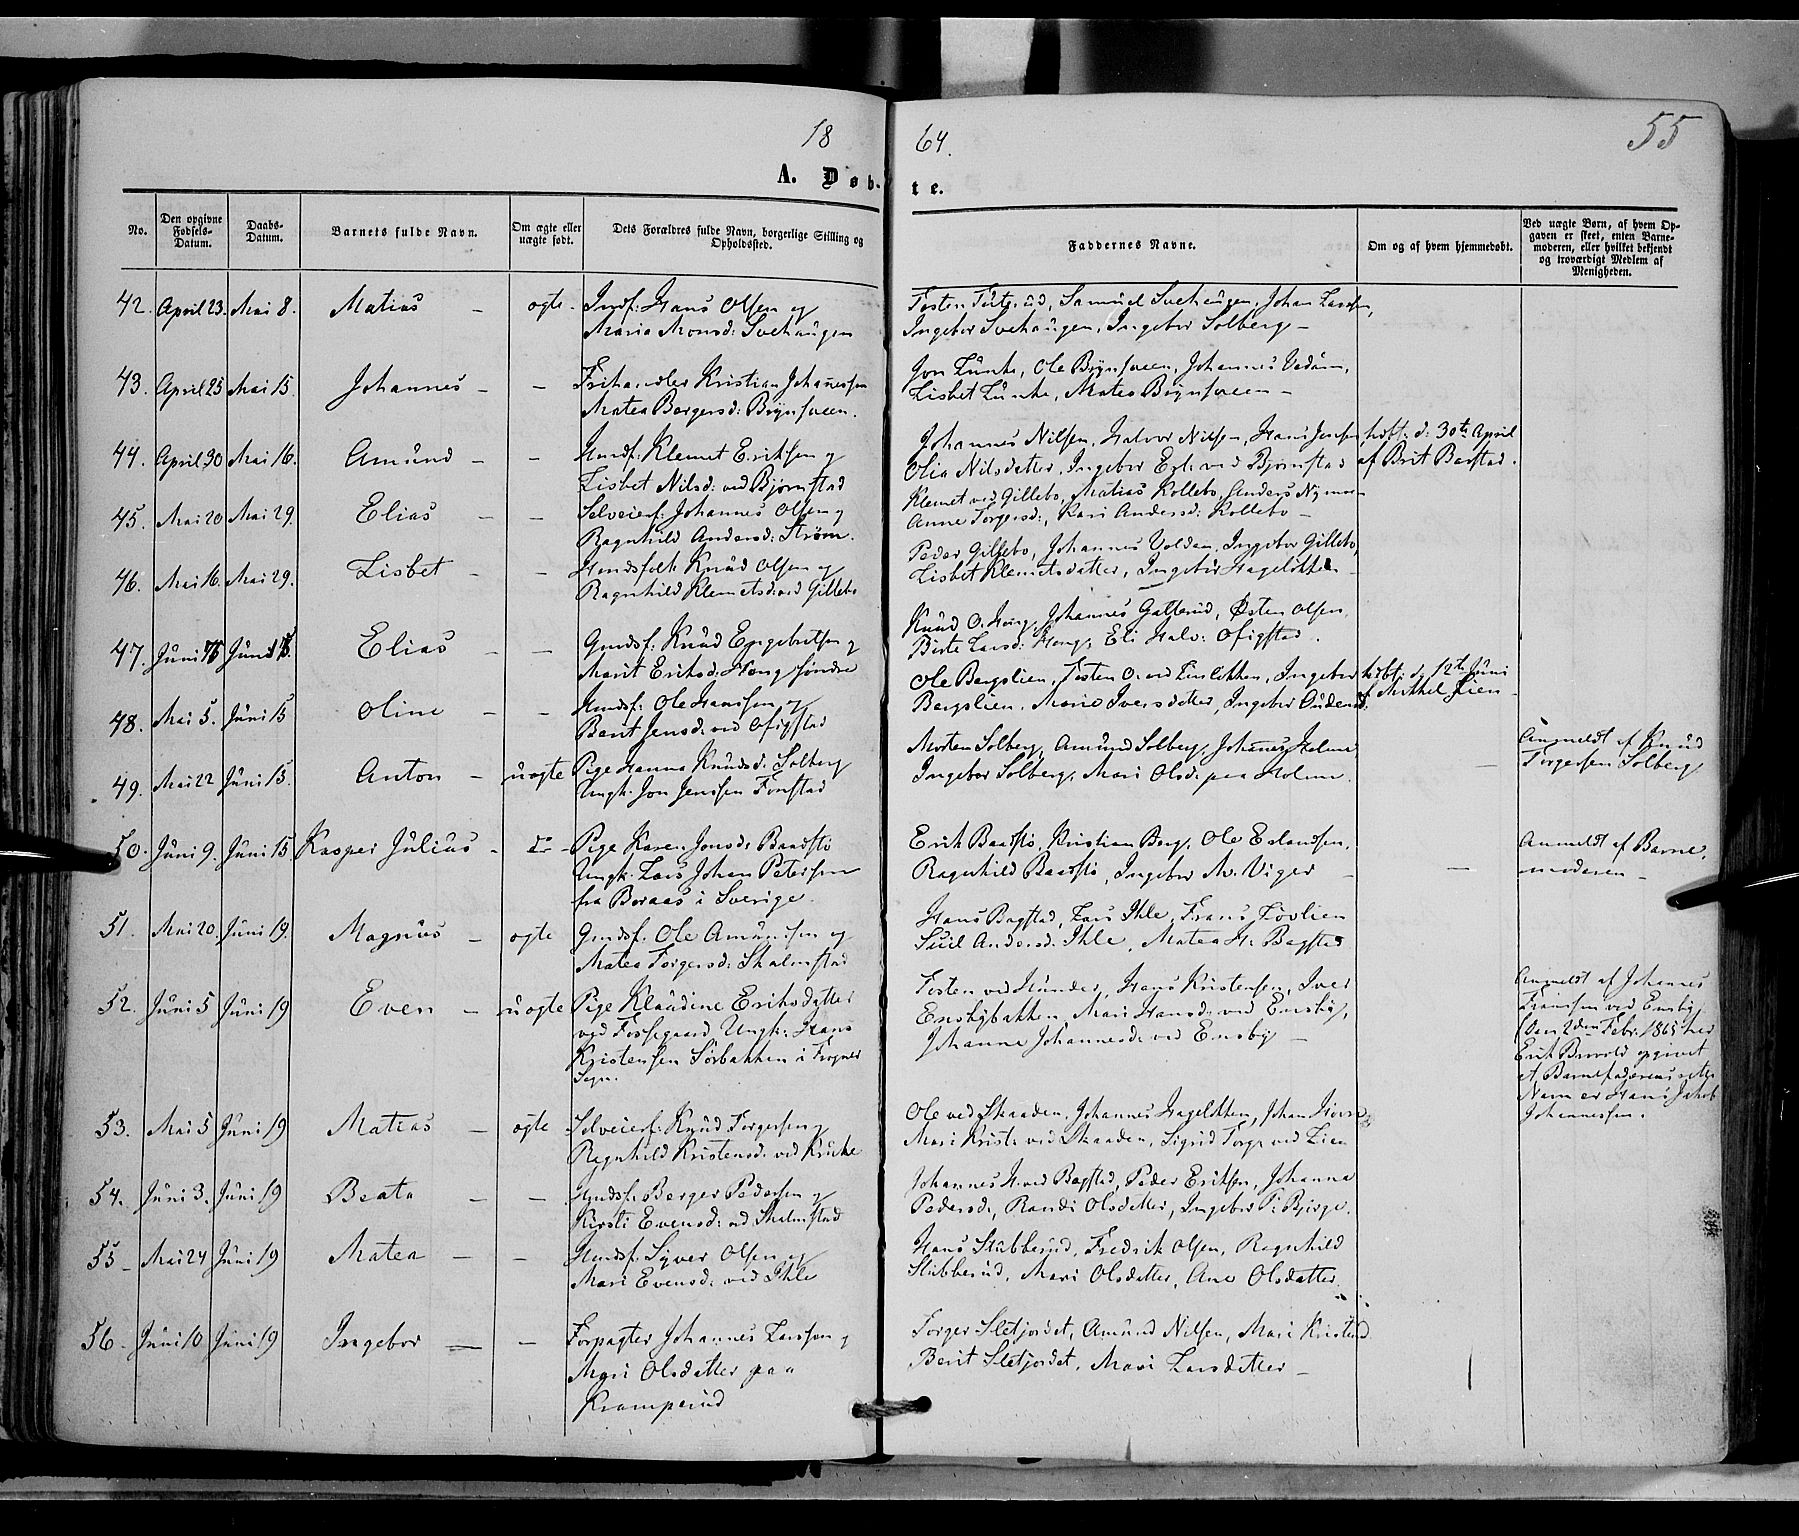 18 64. 55
A. Døb- te.
No. Den opgivne Fødsels-Datum. Daabs-Datum. Barnets fulde Navn. Om ægte eller uægte født. Dets Forældres fulde Navn, borgerlige Stilling og Opholdssted. Faddernes Navne. Om og af hvem hjemmedøbt. Ved uægte Børn, af hvem Opgaven er skeet, enten Barnemoderen, eller hvilket bekjendt og troværdigt Medlem af Menigheden.
42. April 23. Mai 8. Matias – ægte. Indf: Hans Olsen og
Maria Monsd: Svehaugen
Samuel Svehaugen, Johan Larsen,
Ingebor Svehaugen, Ingebor Solberg –
43. April 25 Mai 15. Johannes – – Frihandler Kristian Johanessen
Matea Borgersd: Brynsveen.
Jon Lunke, Ole Brynsveen, Johannes
Lisbet Lunke, Matea Brynsveen –
44. April 30 Mai 16. Amund – – Huusf: Klemet Eriksen og
Lisbet Nilsd: ved Bjørnstad
Johannes Nilsen, Halvor Nilsen, Hans Jensen
Olia Nilsdatter, Ingebor Erl: ved Bjørnstad
d: 30te April
af Brit Barstad.
45. Mai 20 Mai 29. Elias – – Selveierf: Johannes Olsen og
Ragnhild Andersd: Strøm.
Klemet ved Gillebo, Matias Kollebo, Anders
Anne Torgersd:, Kari Andersd: Kollebo –
46. Mai 16. Mai 29. Lisbet – – Huusfolk Knud Olsen og
Ragnhild Klemetsd: ved Gillebo
Peder Gillebo, Johannes Volden, Ingebor Gillebo,
Lisbet Klemetsdatter, Ingebor Hageløkken –
47. Juni Juni Elias – – Gaardsf: Knud Engebretsen og
Marit Eriksd: Hong søndre
Knud O. Hong, Johannes Galterud, Østen Olsen,
Birte Larsd: Hong, Eli Halv: Ofigstad.
48. Mai 5. Juni 15 Oline – – Huusf: Ole Hanssen og
Berit Jensd: ved Ofigstad
Ole Bergslien, Tosten O. ved Finløkken, Ingebor
Bergslien, Marie Iversdatter, Ingebor
d. 12te Juni
af Mikkel Lien –
49. Mai 22 Juni 15. Anton – uægte Pige Hanna Knudsd: Solberg
Ungk: Jon Jenssen Fonstad
Morten Solberg, Amund Solberg, Johannes Holme
Ingebor Solberg, Mari Olsd: paa Holme.
–
Anmeldt af Knud
Torgersen Solberg
50. Juni 9. Juni 15 Kasper Julius – Do – Pige Karen Jonsd: Baadstø
Ungk: Lars Johan Petersen
fra Boraas i Sverige.
Erik Baadstø, Kristian Berg, Ole Erlandsen,
Ragnhild Baadstø, Ingebor M. Viger –
–
Anmeldt af Barne-
moderen –
51. Mai 20 Juni 19. Magnus – ægte Gaardsf: Ole Amundsen og
Matea Torgersd: Skalmstad
Hans Bagstad, Lars Ihle, Frans Løvlien
Andersd: Ihle, Matea H: Bagstad
52. Juni 5 Juni 19 Even – uægte Pige Klaudine Eriksdatter
ved Fossegaard, Ungk: Hans
Kristensen Sorbakken i Froner
Sogn.
Tosten ved Hunder, Hans Kristensen, Iver
Ensbybakken, Mari Hansd: ved Ensby,
Johanne Johannesd: ved Ensby –
Anmeldt af Johannes
Franssen ved Ensby
(Den 2den Febr. 1865 har
Erik opgivet
at Barnefaderens rette
Navn er Hans Jakob
Johannessen.
53. Mai 5 Juni 19 Matias – ægte Selveierf: Knud Torgersen og
Ragnhild Kristensd: ved Kruke
Ole ved Skaaden, Johannes Hageløkken, Johan
Mari Krist: ved Skaaden, Sigrid Torg: ved Lien
54. Juni 3. Juni 19 Beata – – Huusf: Berger Pedersen og
Kirsti Evensd: ved Skalmstad
Johannes H. ved Bagstad, Peder Eriksen, Johanna
Pedersd:, Randi Olsdatter, Ingebor P: Bjørge.
55 – Mai 24 Juni 19 Matea – – Huusf: Syver Olsen og
Mari Evensd: ved Ihle
Hans Stubberud, Fredrik Olsen, Ragnhild
Stubberud, Mari Olsdatter, Ane Olsdatter.
56. Juni 10 Juni 19 Ingebor – – Forpagter Johannes Larssen og
Mari Olsdatter paa
Kramperud
Torger Sletjordet, Amund Nilsen, Mari Kristensd
Berit Sletjordet, Mari Larsdatter –